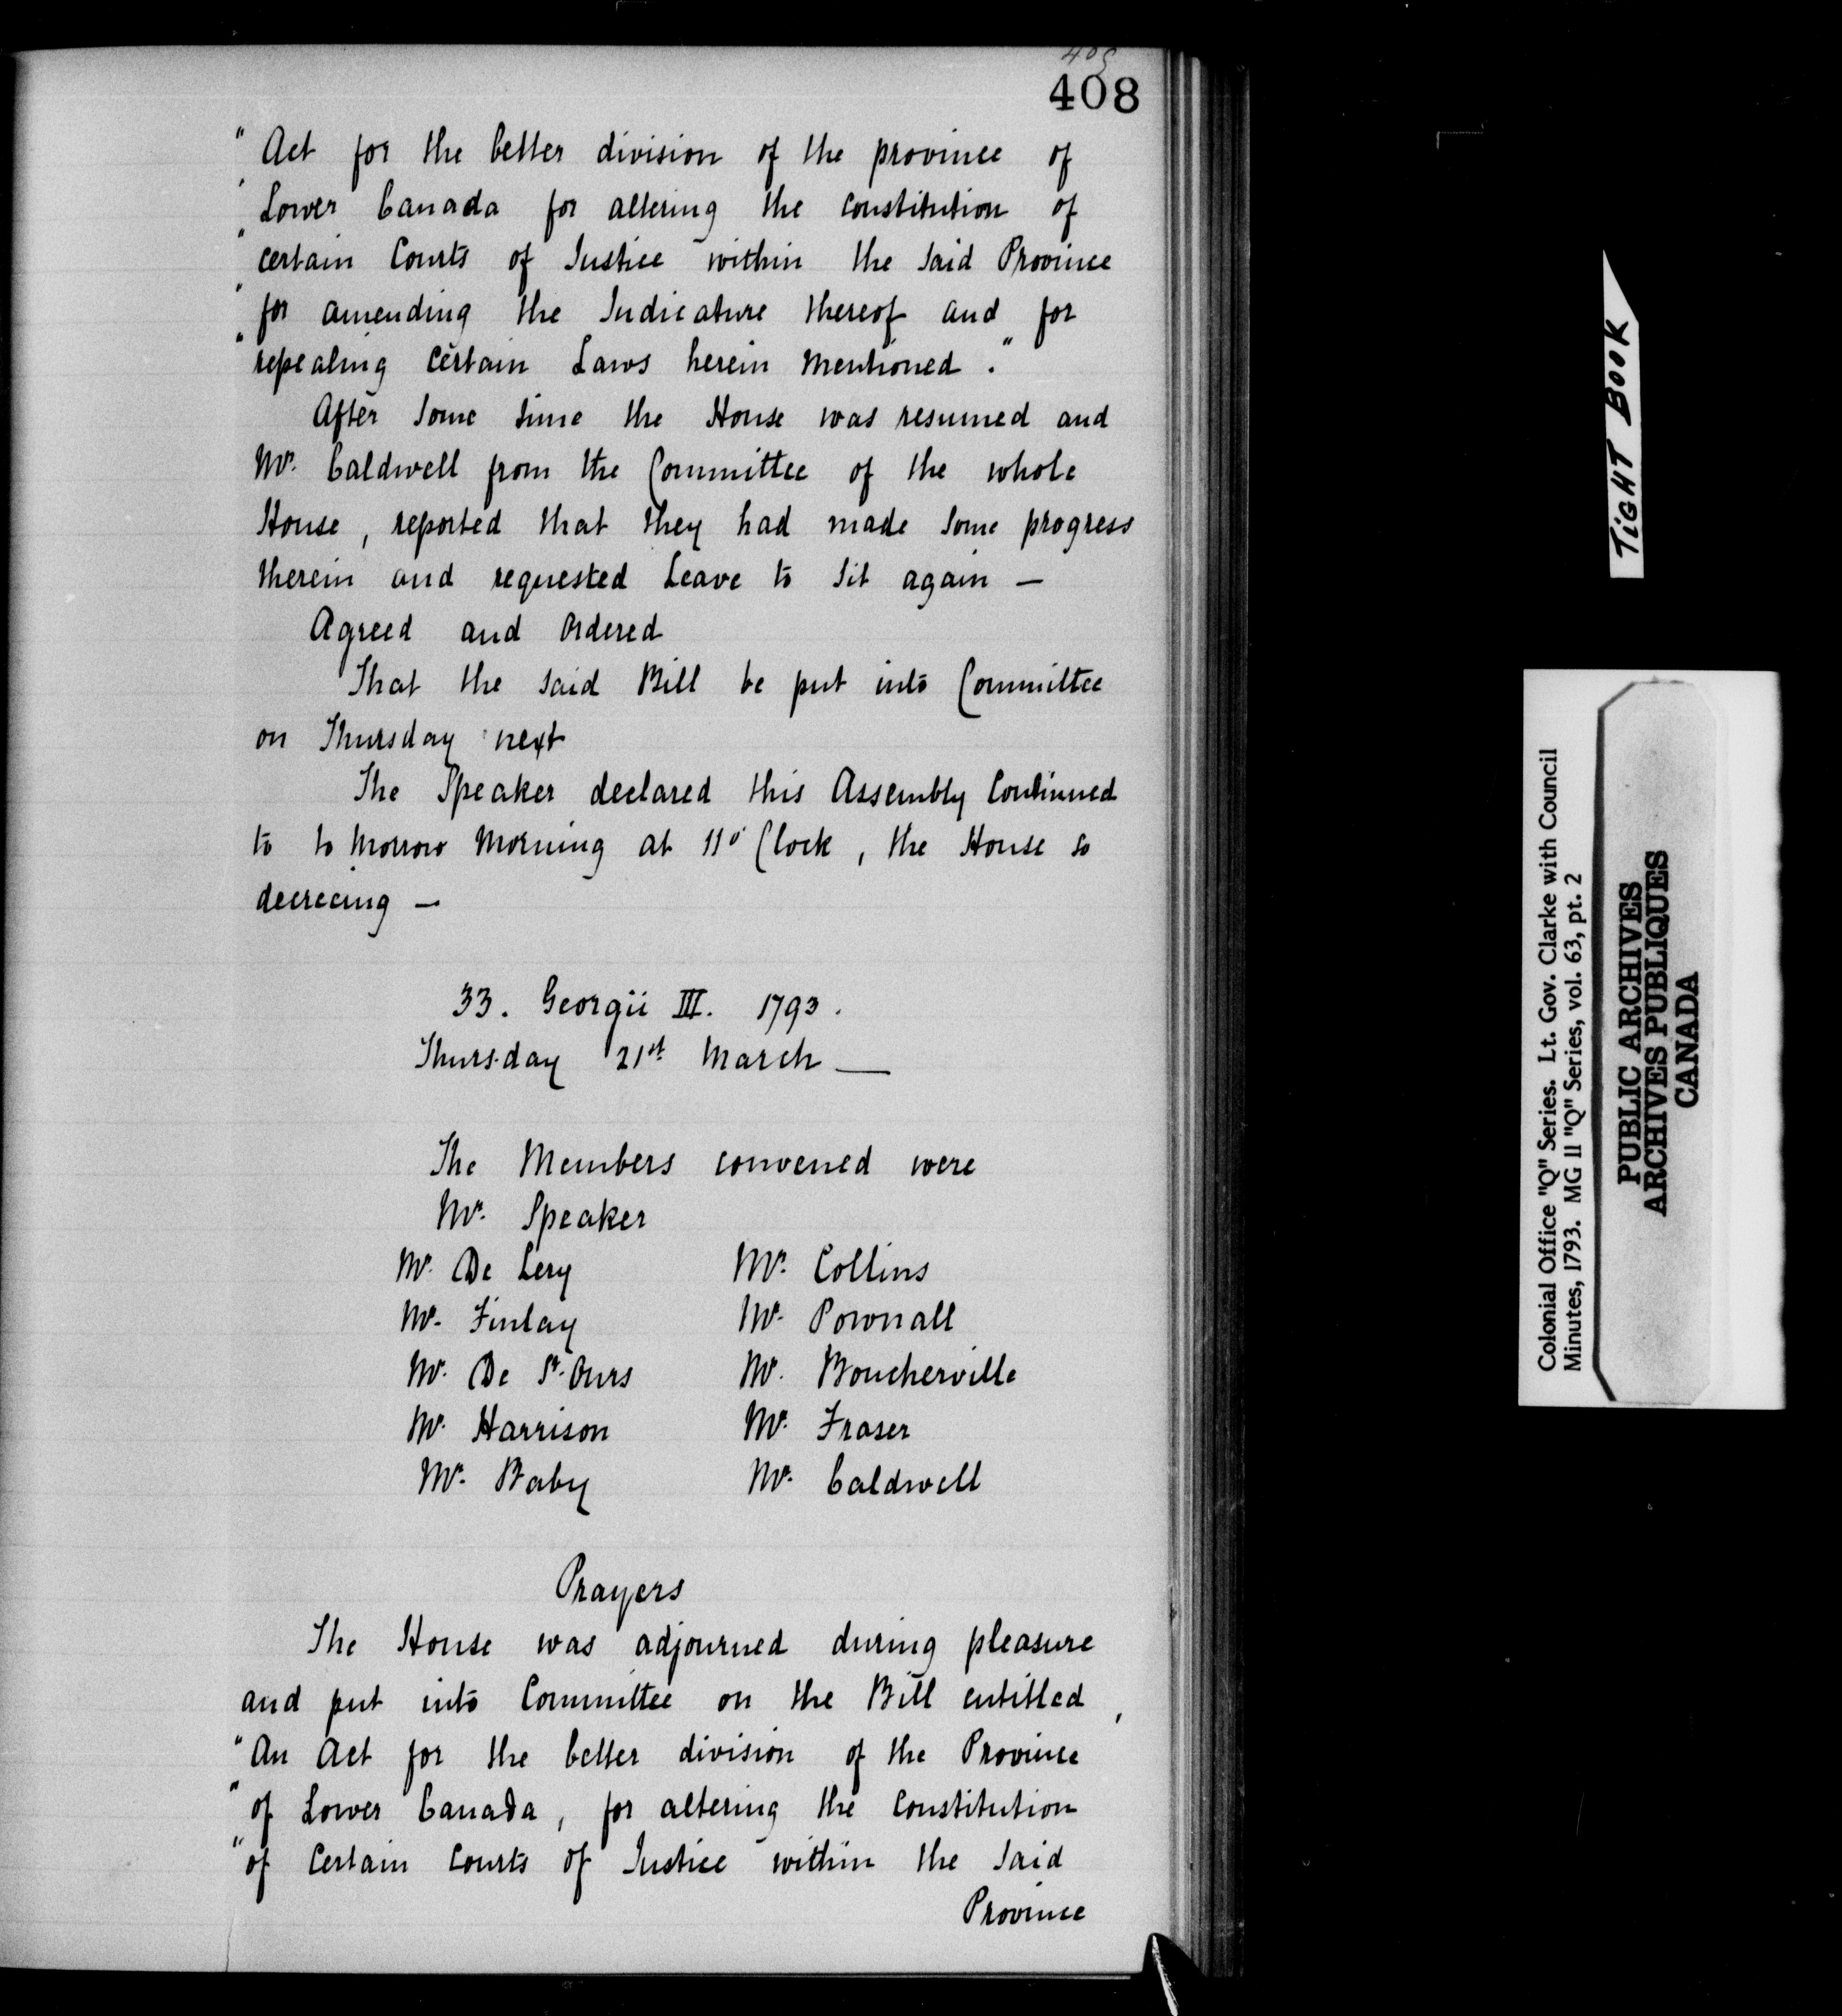 408
408
" Act for the better division of the province of
" Lower Canada for altering the constitution of
" certain Courts of Justice within the said Province
" for amending the Judicature thereof and for
" repealing certain Laws herein mentioned . "
After some time the House was resumed and
Mr. Caldwell from the Committee of the whole
House , reported that they had made some progress
therein and requested Leave to sit again —
Agreed and ordered
That the said Bill be put into Committee
on Thursday next
The Speaker declared this Assembly Continued
to to Morrow Morning at 11 o' Clock , the House so
decreeing —
33 . Georgii III . 1793 .
Thursday 21st March —
The Members convened were
Mr. Speaker
Mr. De Lery Mr. Collins
Mr. Finlay Mr. Pownall
Mr. De St. Ours Mr. Boucherville
Mr. Harrison Mr. Fraser
Mr. Baby Mr. Caldwell
Prayers
The House was adjourned during pleasure
and put into Committee on the Bill entitled ,
" An Act for the better division of the Province
" of Lower Canada , for altering the Constitution
" of Certain Courts of Justice within the said
Province
TIGHT BOOK
Colonial Office "Q" Series. Lt. Gov. Clarke with Council
Minutes, 1793. MG 11 "Q" Series, vol. 63, pt. 2
PUBLIC ARCHIVES
ARCHIVES PUBLIQUES
CANADA